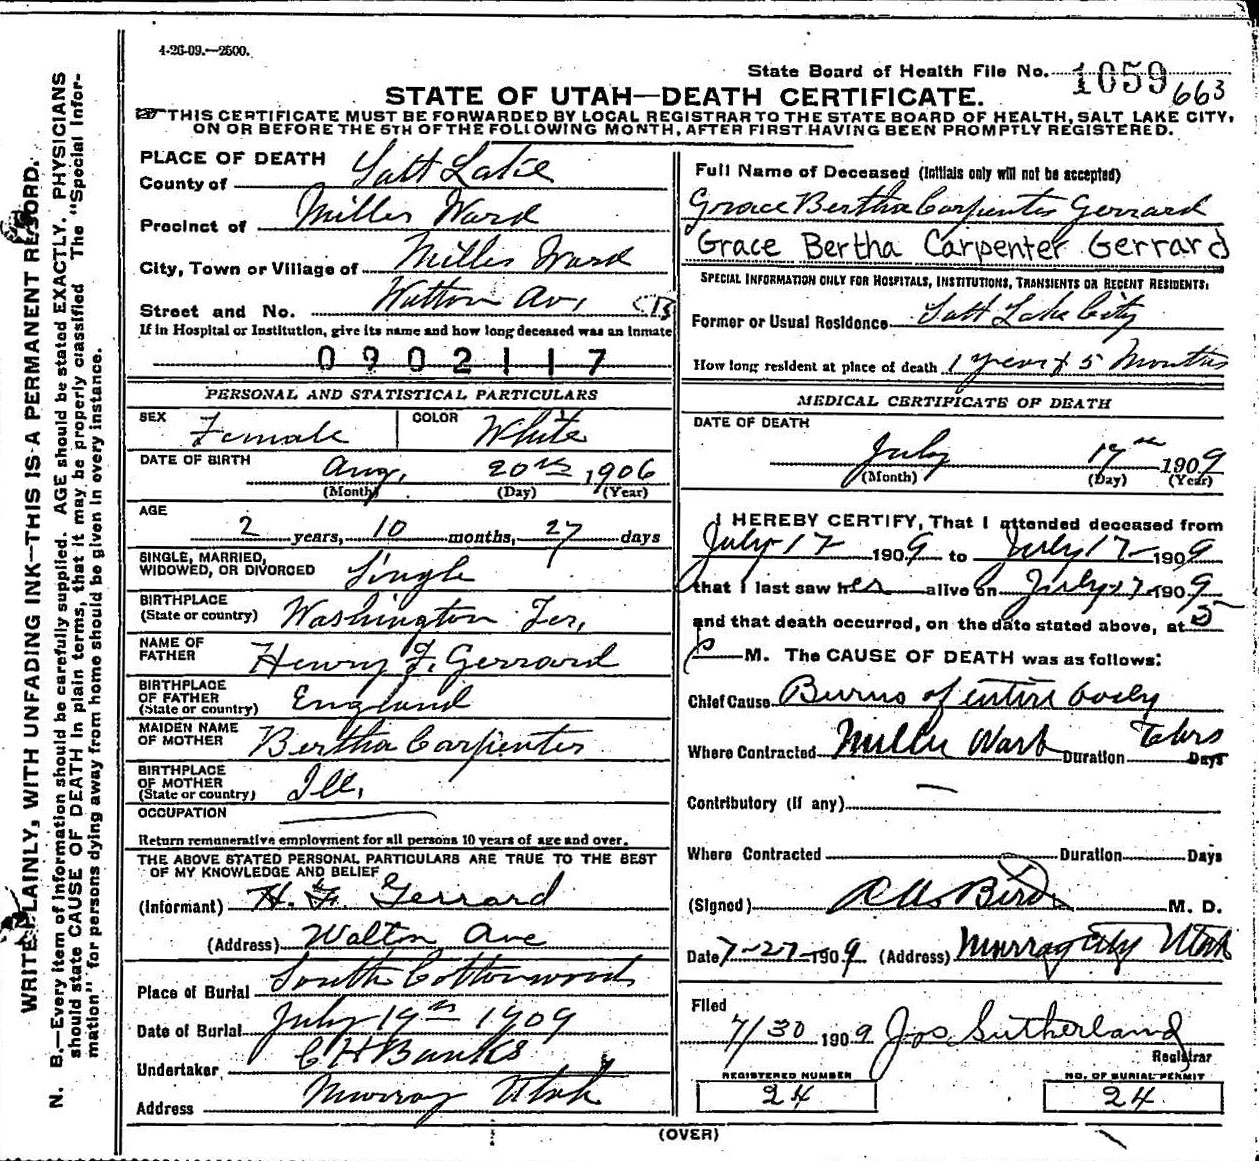 4-26-09.—2500.
State Board of Health File No. 1059 663
STATE OF UTAH—DEATH CERTIFICATE.
THIS CERTIFICATE MUST BE FORWARDED BY LOCAL REGISTRAR TO THE STATE BOARD OF HEALTH, SALT LAKE CITY,
ON OR BEFORE THE 5TH OF THE FOLLOWING MONTH, AFTER FIRST HAVING BEEN PROMPTLY REGISTERED.
WRITE PLAINLY, WITH UNFADING INK—THIS IS A PERMANENT RECORD.
N. B.—Every item of information should be carefully supplied. AGE should be stated EXACTLY. PHYSICIANS
should state CAUSE OF DEATH in plain terms, that it may be properly classified The "Special Infor-
mation" for persons dying away from home should be given in every instance.
PLACE OF DEATH
County of Salt Lake
Precinct of Miller Ward
City, Town or Village of Miller Ward
Street and No. Walton Av,
If in Hospital or Institution, give its name and how long deceased was an inmate
0902117
PERSONAL AND STATISTICAL PARTICULARS
SEX Female COLOR White
DATE OF BIRTH Aug, 20th, 1906
(Month) (Day) (Year)
AGE
2 years, 10 months, 27 days
SINGLE, MARRIED,
WIDOWED, OR DIVORCED Single
BIRTHPLACE
(State or country) Washington Ter,
NAME OF
FATHER Henry F. Gerrard
BIRTHPLACE
OF FATHER
(State or country) England
MAIDEN NAME
OF MOTHER Bertha Carpenter
BIRTHPLACE
OF MOTHER
(State or country) Ill,
OCCUPATION
Return remunerative employment for all persons 10 years of age and over.
THE ABOVE STATED PERSONAL PARTICULARS ARE TRUE TO THE BEST
OF MY KNOWLEDGE AND BELIEF
(Informant) H. F. Gerrard
(Address) Walton Ave
Place of Burial South Cottonwood
Date of Burial July 19th 1909
Undertaker C H Banks
Address Murray Utah
Full Name of Deceased (Initials only will not be accepted)
Grace Bertha Carpenter Gerrard
Grace Bertha Carpenter Gerrard
SPECIAL INFORMATION ONLY FOR HOSPITALS, INSTITUTIONS, TRANSIENTS OR RECENT RESIDENTS:
Former or Usual Residence Salt Lake City
How long resident at place of death 1 year & 5 Months
MEDICAL CERTIFICATE OF DEATH
DATE OF DEATH
July 17th 1909
(Month) (Day) (Year)
I HEREBY CERTIFY, That I attended deceased from
July 17 1909 to July 17 1909
that I last saw her alive on July 17 1909
and that death occurred, on the date stated above, at 5
p M. The CAUSE OF DEATH was as follows:
Chief Cause Burns of entire body
Where Contracted Miller Ward Duration hrs Days
Contributory (if any)
Where Contracted Duration Days
(Signed) Bird M. D.
Date 7-27-1909 (Address) Murray City Utah
Filed
7/30 1909 Jos Sutherland
Registrar
REGISTERED NUMBER NO. OF BURIAL PERMIT
24 24
(OVER)